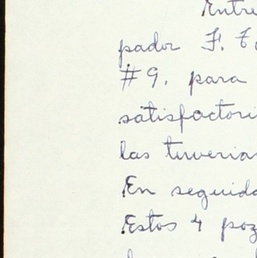 Entre
pador F. T
#9. para
satisfactori
las tuverias
En seguida
Estos 4 poz